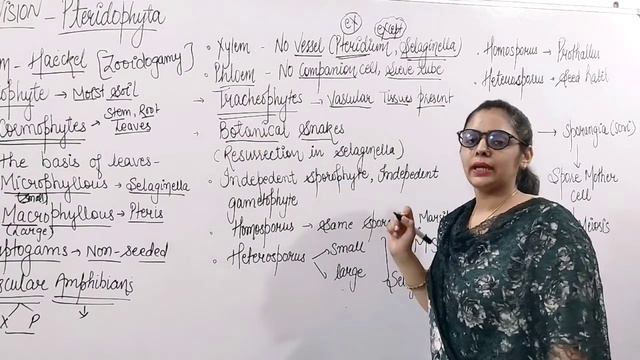 VISION - Pteridophyta
m - Haeckel [Zooidogamy]
ophyte → Moist soil
Cormophytes → Stem, Root
Leaves
the basis of leaves-
Microphyllous → Selaginella
(small)
Macrophyllous → Pteris
(Large)
ptogams → Non-seeded
scular Amphibians
X P
ex except
• Xylem - No Vessel (Pteridium, Selaginella)
• Phloem - No Companion cell, Sieve tube
→ Tracheophytes → Vascular Tissues present
- Botanical Snakes
(Resurrection in Selaginella)
• Indepedent Sporophyte, Indepedent
gametophyte
• Homosporus → Same Spore
• Heterosporus < Small
large
Marsil
Sel
• Homosporus → Prothallus
• Heterosporus → Seed habit
→ Sporangia
↓
Spore Mother
cell
Meiosis